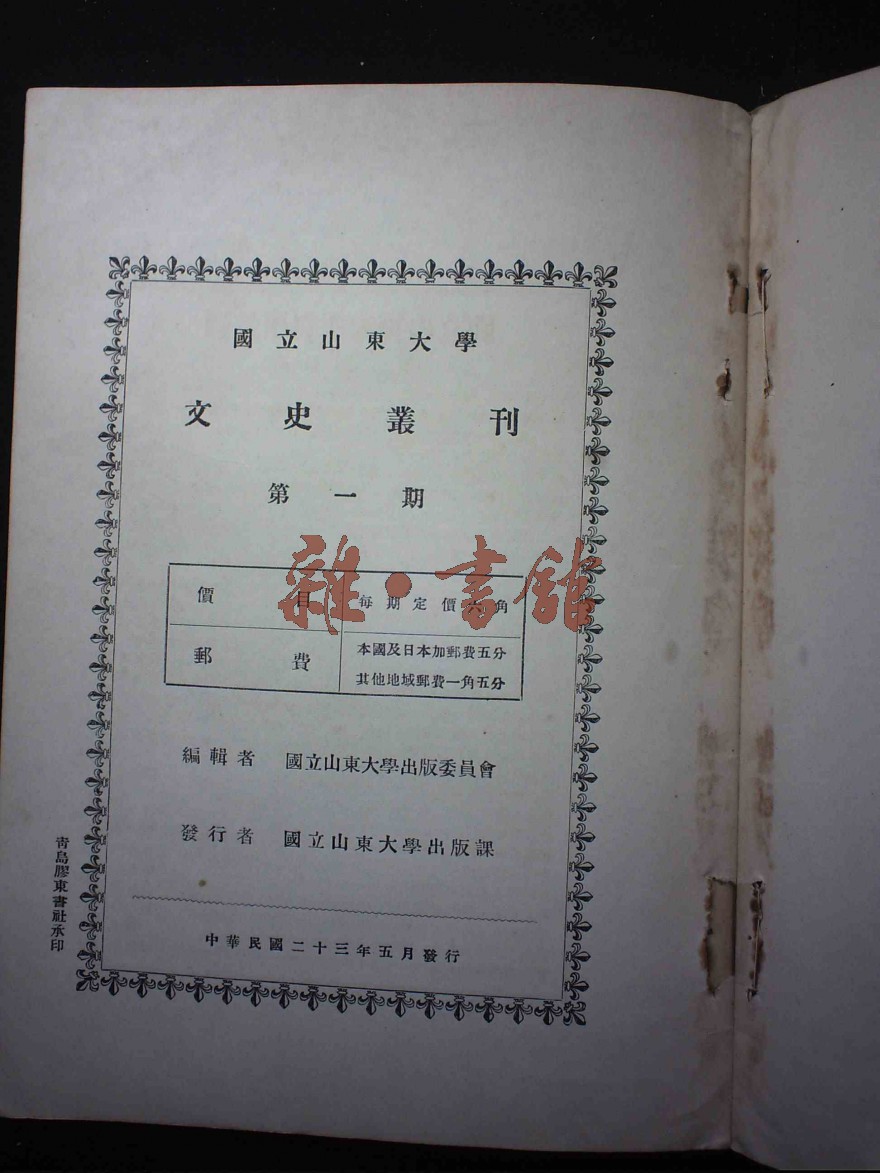 國立山東大學
文史叢刊
第一期
價目 每期定價六角
郵費 本國及日本加郵費五分
其他地域郵費一角五分
編輯者 國立山東大學出版委員會
發行者 國立山東大學出版課
中華民國二十三年五月發行
青島膠東書社承印
雜·書館